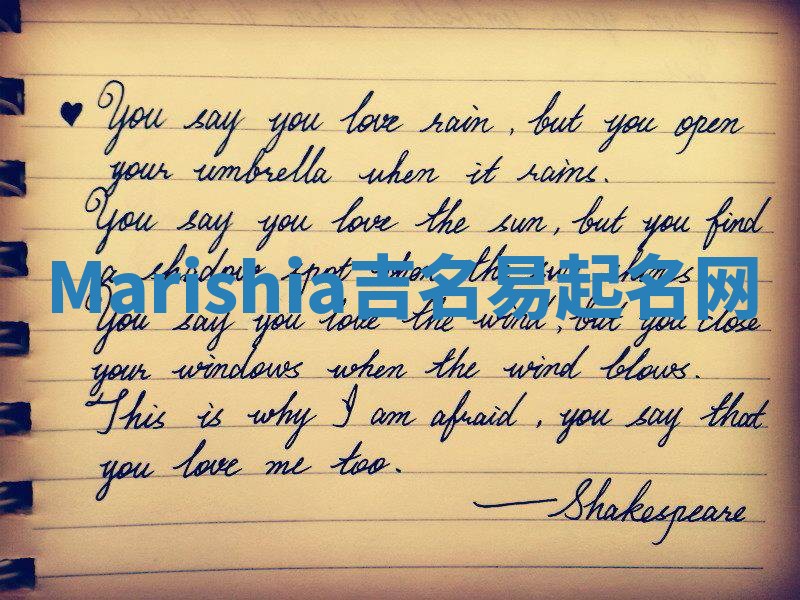 ♥ You say you love rain, but you open
your umbrella when it rains.
You say you love the sun, but you find
a shadow spot when the sun shines
Marishia吉名易起名网
You say you love the wind, but you close
your windows when the wind blows.
This is why I am afraid, you say that
you love me too.
— Shakespeare